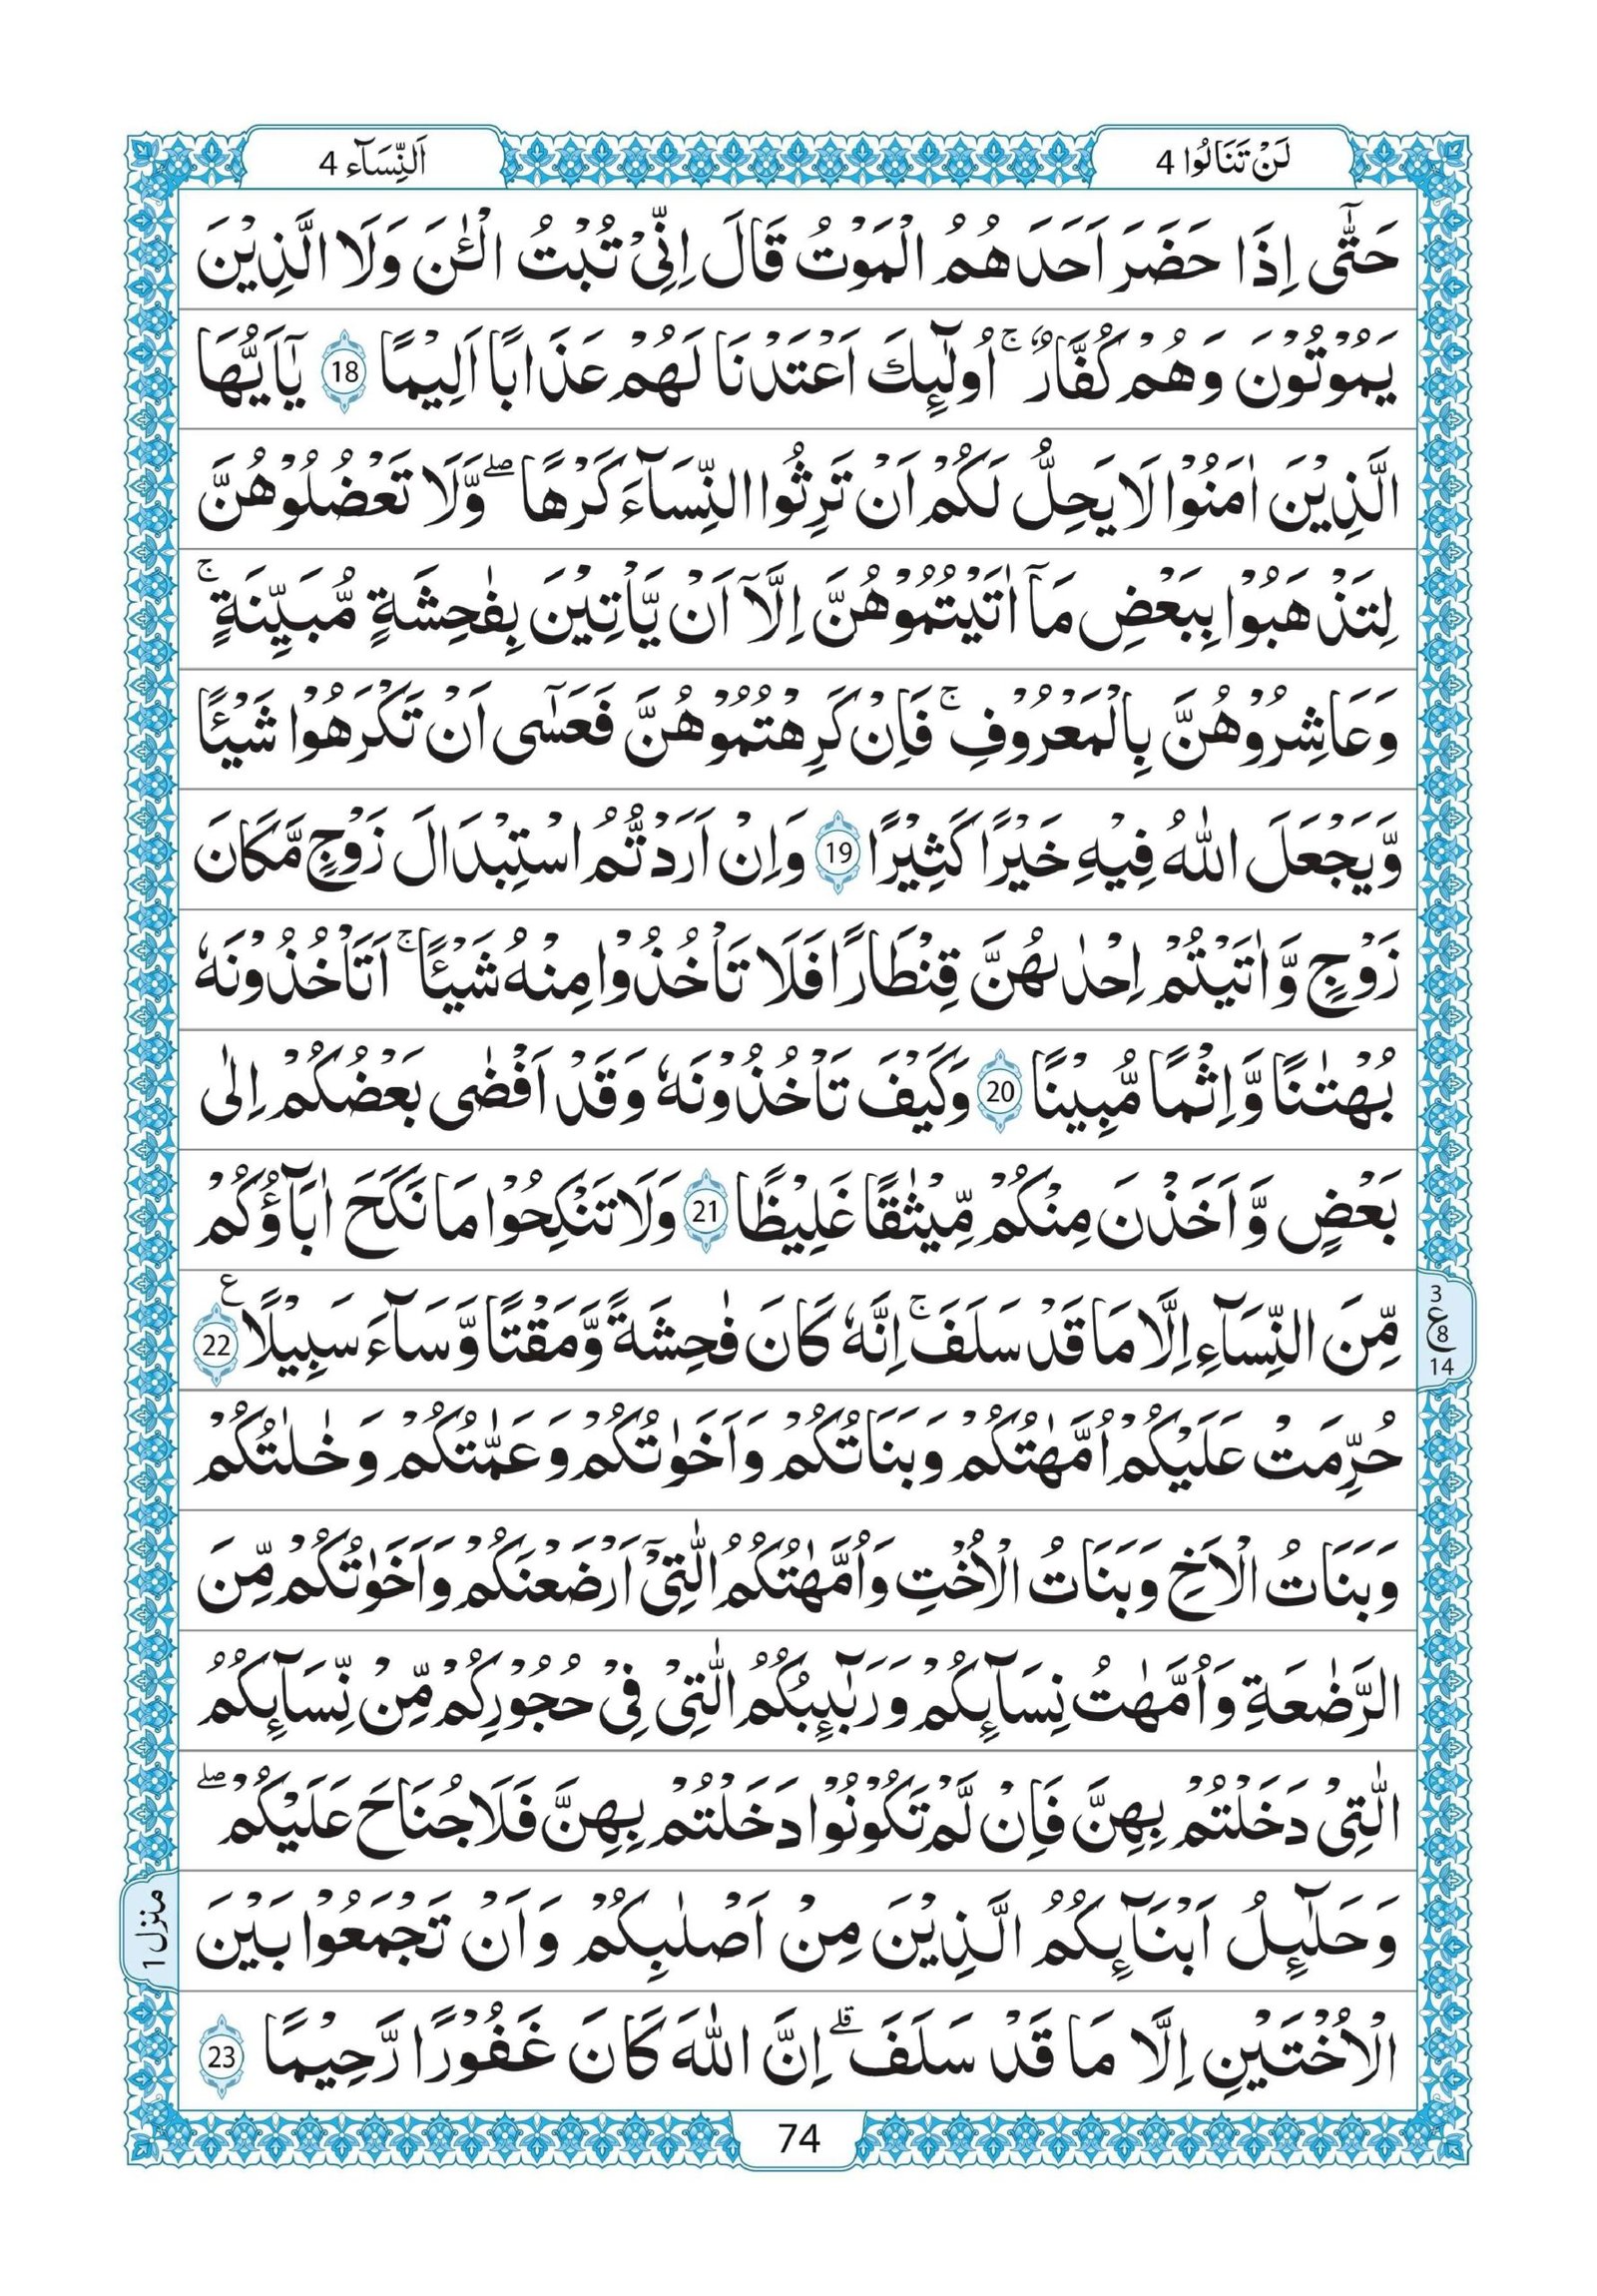 لَنْ تَنَالُوا 4
اَلنِّسَآء 4
حَتّٰٓى اِذَا حَضَرَ اَحَدَهُمُ الْمَوْتُ قَالَ اِنِّىْ تُبْتُ الْـٰٔنَ وَلَا الَّذِيْنَ
يَمُوْتُوْنَ وَهُمْ كُفَّارٌ ؕۚ اُولٰٓئِكَ اَعْتَدْنَا لَهُمْ عَذَابًا اَلِيْمًا 18 يٰٓاَيُّهَا
الَّذِيْنَ اٰمَنُوْا لَا يَحِلُّ لَكُمْ اَنْ تَرِثُوا النِّسَآءَ كَرْهًا ۖ وَّلَا تَعْضُلُوْهُنَّ
لِتَذْهَبُوْا بِبَعْضِ مَآ اٰتَيْتُمُوْهُنَّ اِلَّآ اَنْ يَّاْتِيْنَ بِفٰحِشَةٍ مُّبَيِّنَةٍ ۚ
وَعَاشِرُوْهُنَّ بِالْمَعْرُوْفِ ۚ فَاِنْ كَرِهْتُمُوْهُنَّ فَعَسٰٓى اَنْ تَكْرَهُوْا شَيْـًٔا
وَّيَجْعَلَ اللّٰهُ فِيْهِ خَيْرًا كَثِيْرًا 19 وَاِنْ اَرَدْتُّمُ اسْتِبْدَالَ زَوْجٍ مَّكَانَ
زَوْجٍ وَّاٰتَيْتُمْ اِحْدٰىهُنَّ قِنْطَارًا فَلَا تَاْخُذُوْا مِنْهُ شَيْـًٔا ۚ اَتَاْخُذُوْنَهٗ
بُهْتٰنًا وَّاِثْمًا مُّبِيْنًا 20 وَكَيْفَ تَاْخُذُوْنَهٗ وَقَدْ اَفْضٰى بَعْضُكُمْ اِلٰى
بَعْضٍ وَّاَخَذْنَ مِنْكُمْ مِّيْثٰقًا غَلِيْظًا 21 وَلَا تَنْكِحُوْا مَا نَكَحَ اٰبَآؤُكُمْ
مِّنَ النِّسَآءِ اِلَّا مَا قَدْ سَلَفَ ۚ اِنَّهٗ كَانَ فٰحِشَةً وَّمَقْتًا وَّسَآءَ سَبِيْلًا ع 22
3 ع 8 14
حُرِّمَتْ عَلَيْكُمْ اُمَّهٰتُكُمْ وَبَنَاتُكُمْ وَاَخَوٰتُكُمْ وَعَمّٰتُكُمْ وَخٰلٰتُكُمْ
وَبَنَاتُ الْاَخِ وَبَنَاتُ الْاُخْتِ وَاُمَّهٰتُكُمُ الّٰتِىْٓ اَرْضَعْنَكُمْ وَاَخَوٰتُكُمْ مِّنَ
الرَّضٰعَةِ وَاُمَّهٰتُ نِسَآئِكُمْ وَرَبَآئِبُكُمُ الّٰتِىْ فِىْ حُجُوْرِكُمْ مِّنْ نِّسَآئِكُمُ
الّٰتِىْ دَخَلْتُمْ بِهِنَّ فَاِنْ لَّمْ تَكُوْنُوْا دَخَلْتُمْ بِهِنَّ فَلَا جُنَاحَ عَلَيْكُمْ ۖ
وَحَلٰٓئِلُ اَبْنَآئِكُمُ الَّذِيْنَ مِنْ اَصْلٰبِكُمْ وَاَنْ تَجْمَعُوْا بَيْنَ
منزل 1
الْاُخْتَيْنِ اِلَّا مَا قَدْ سَلَفَ ۗ اِنَّ اللّٰهَ كَانَ غَفُوْرًا رَّحِيْمًا 23
74